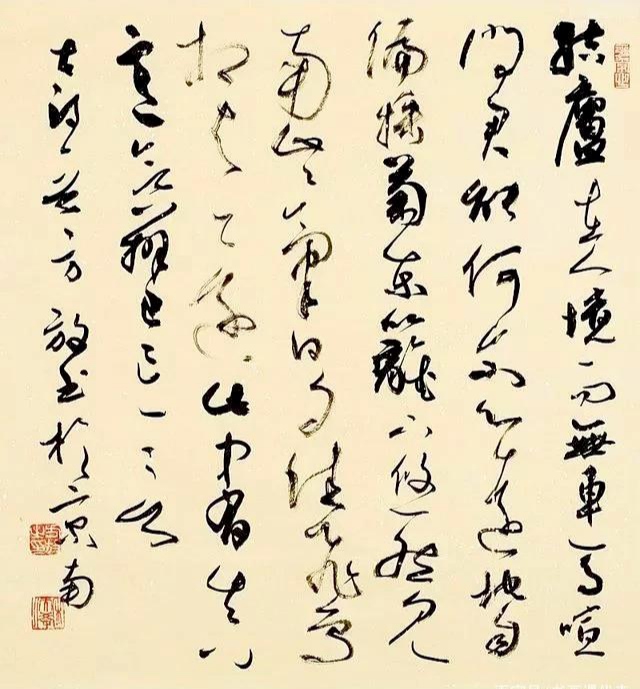 結廬在人境而無車馬喧
問君能何尔心遠地自
偏採菊東籬下悠然見
南山山氣日夕佳飛鳥
相与還此中有真
意欲辨已忘言
书於京南